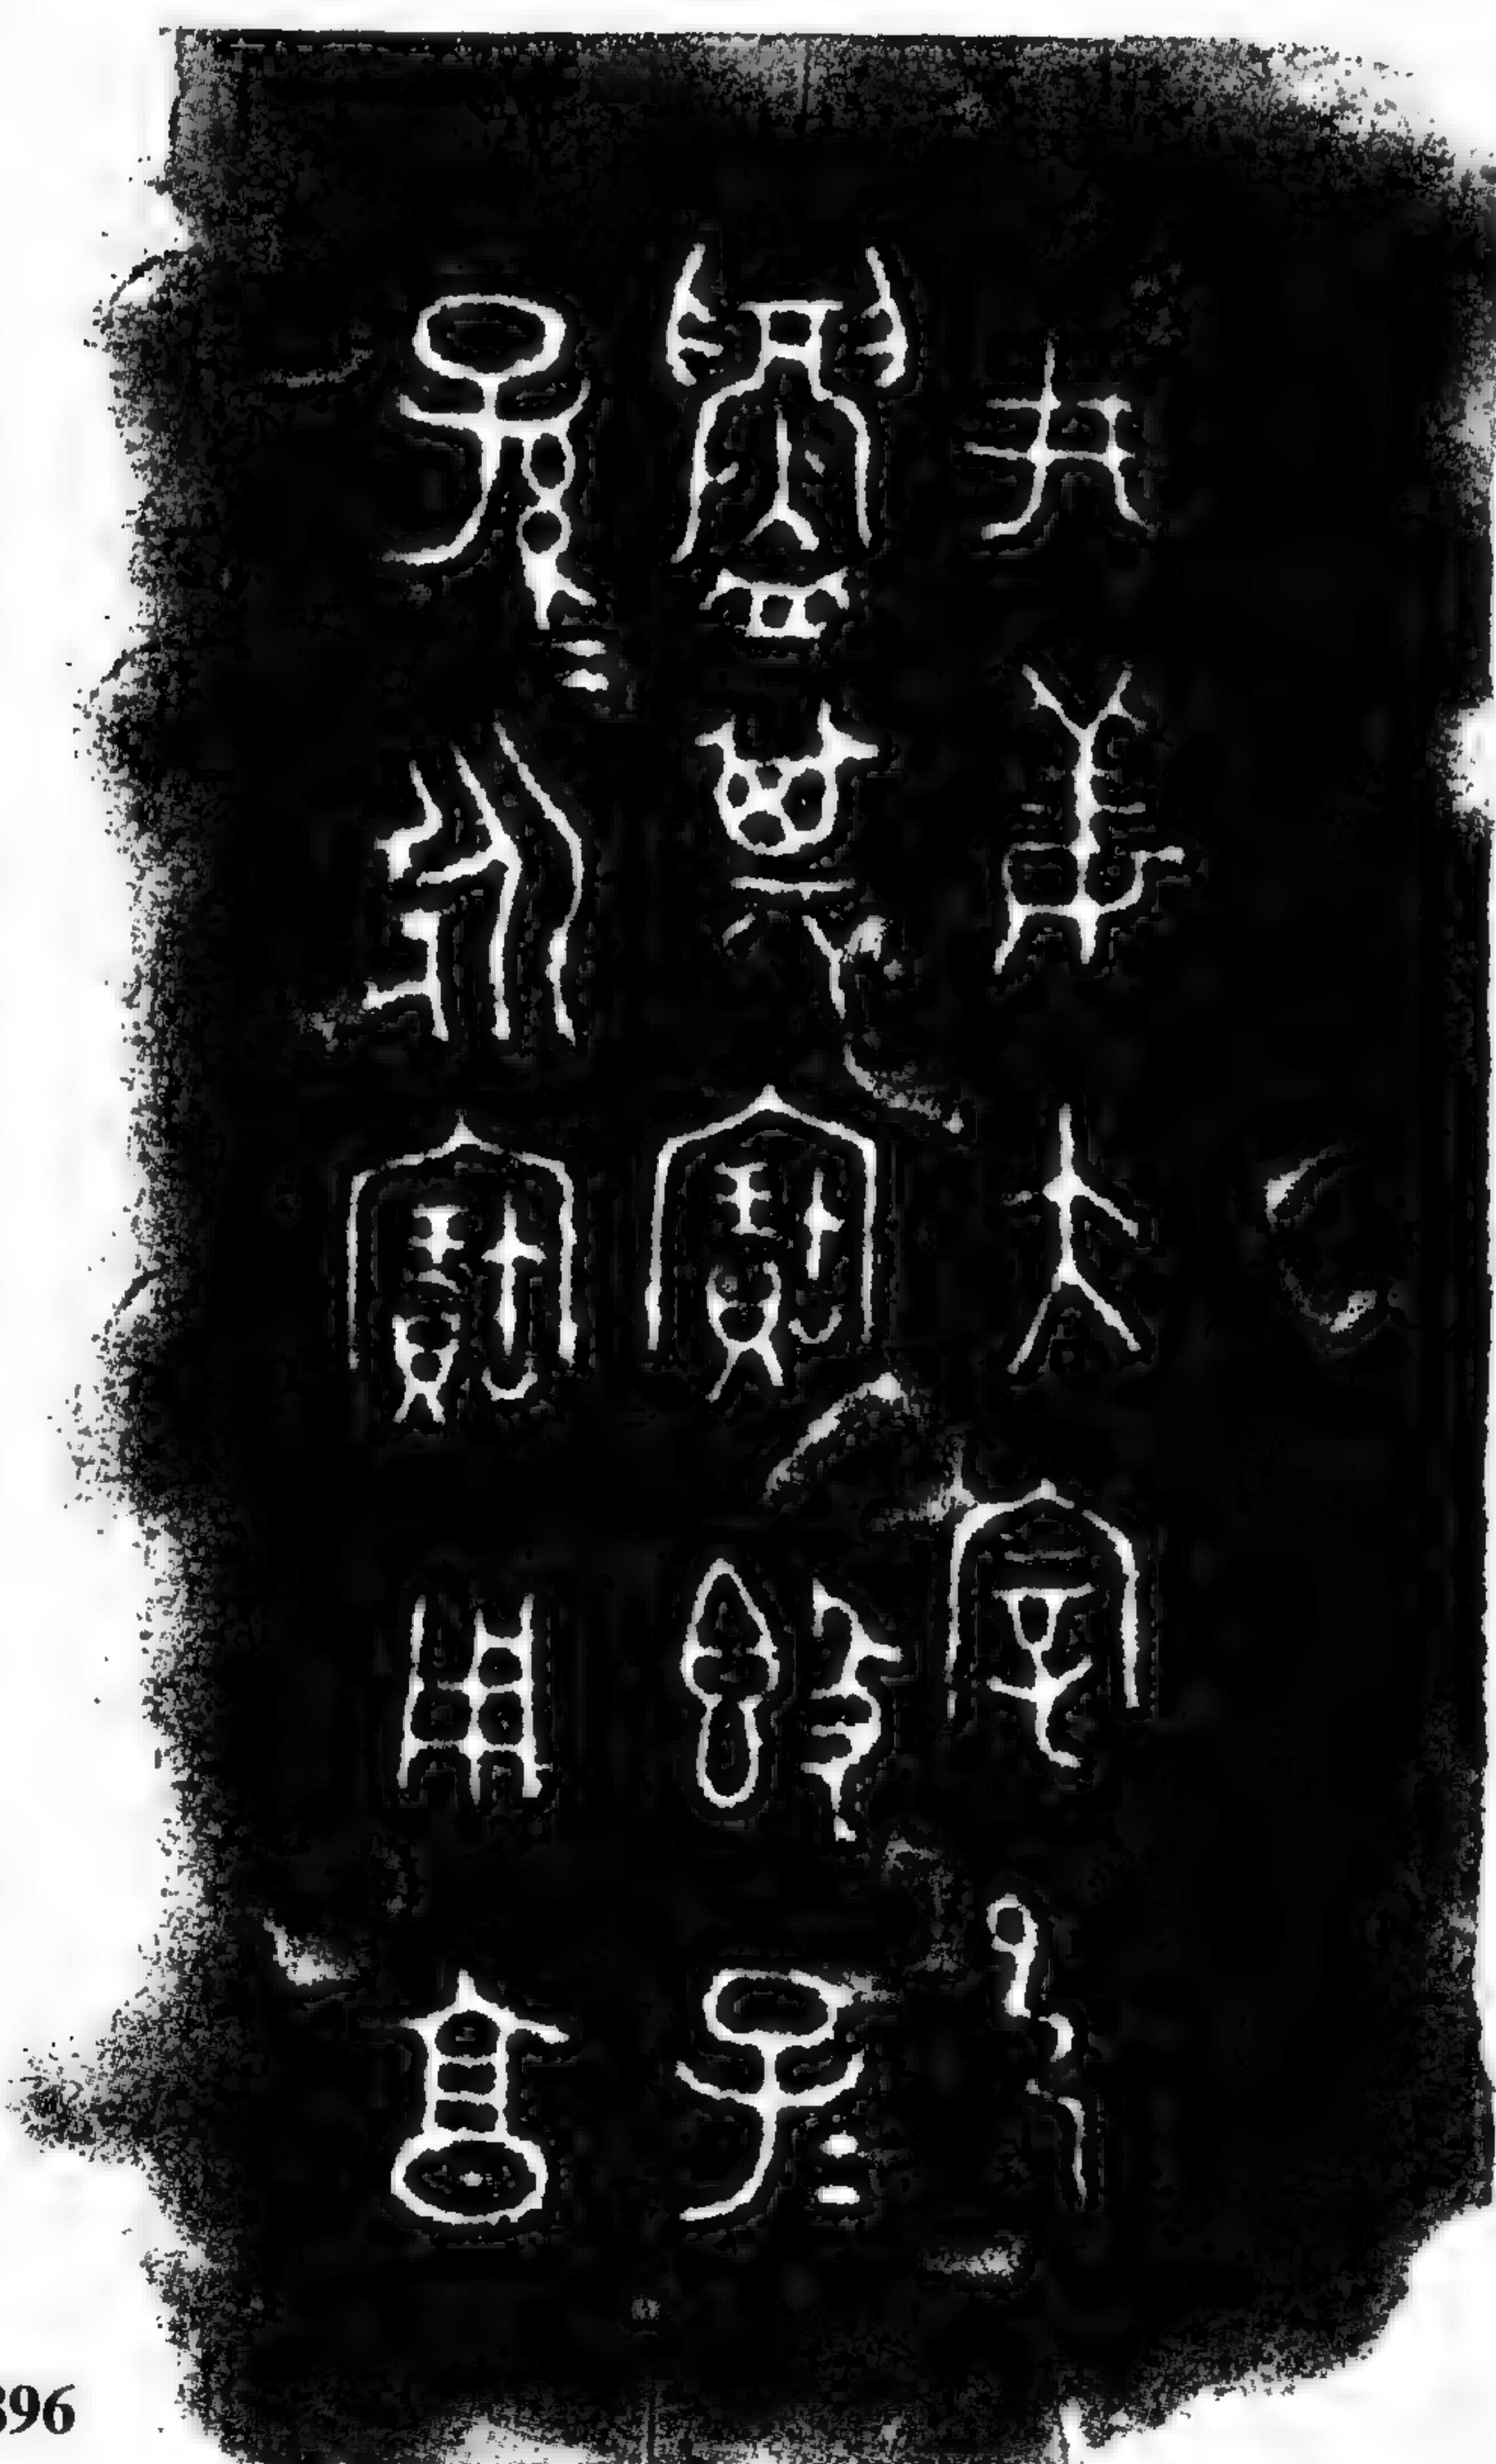 井姜大宰巳
鑄其寶𣪘子=
孫=永寶用亯
896